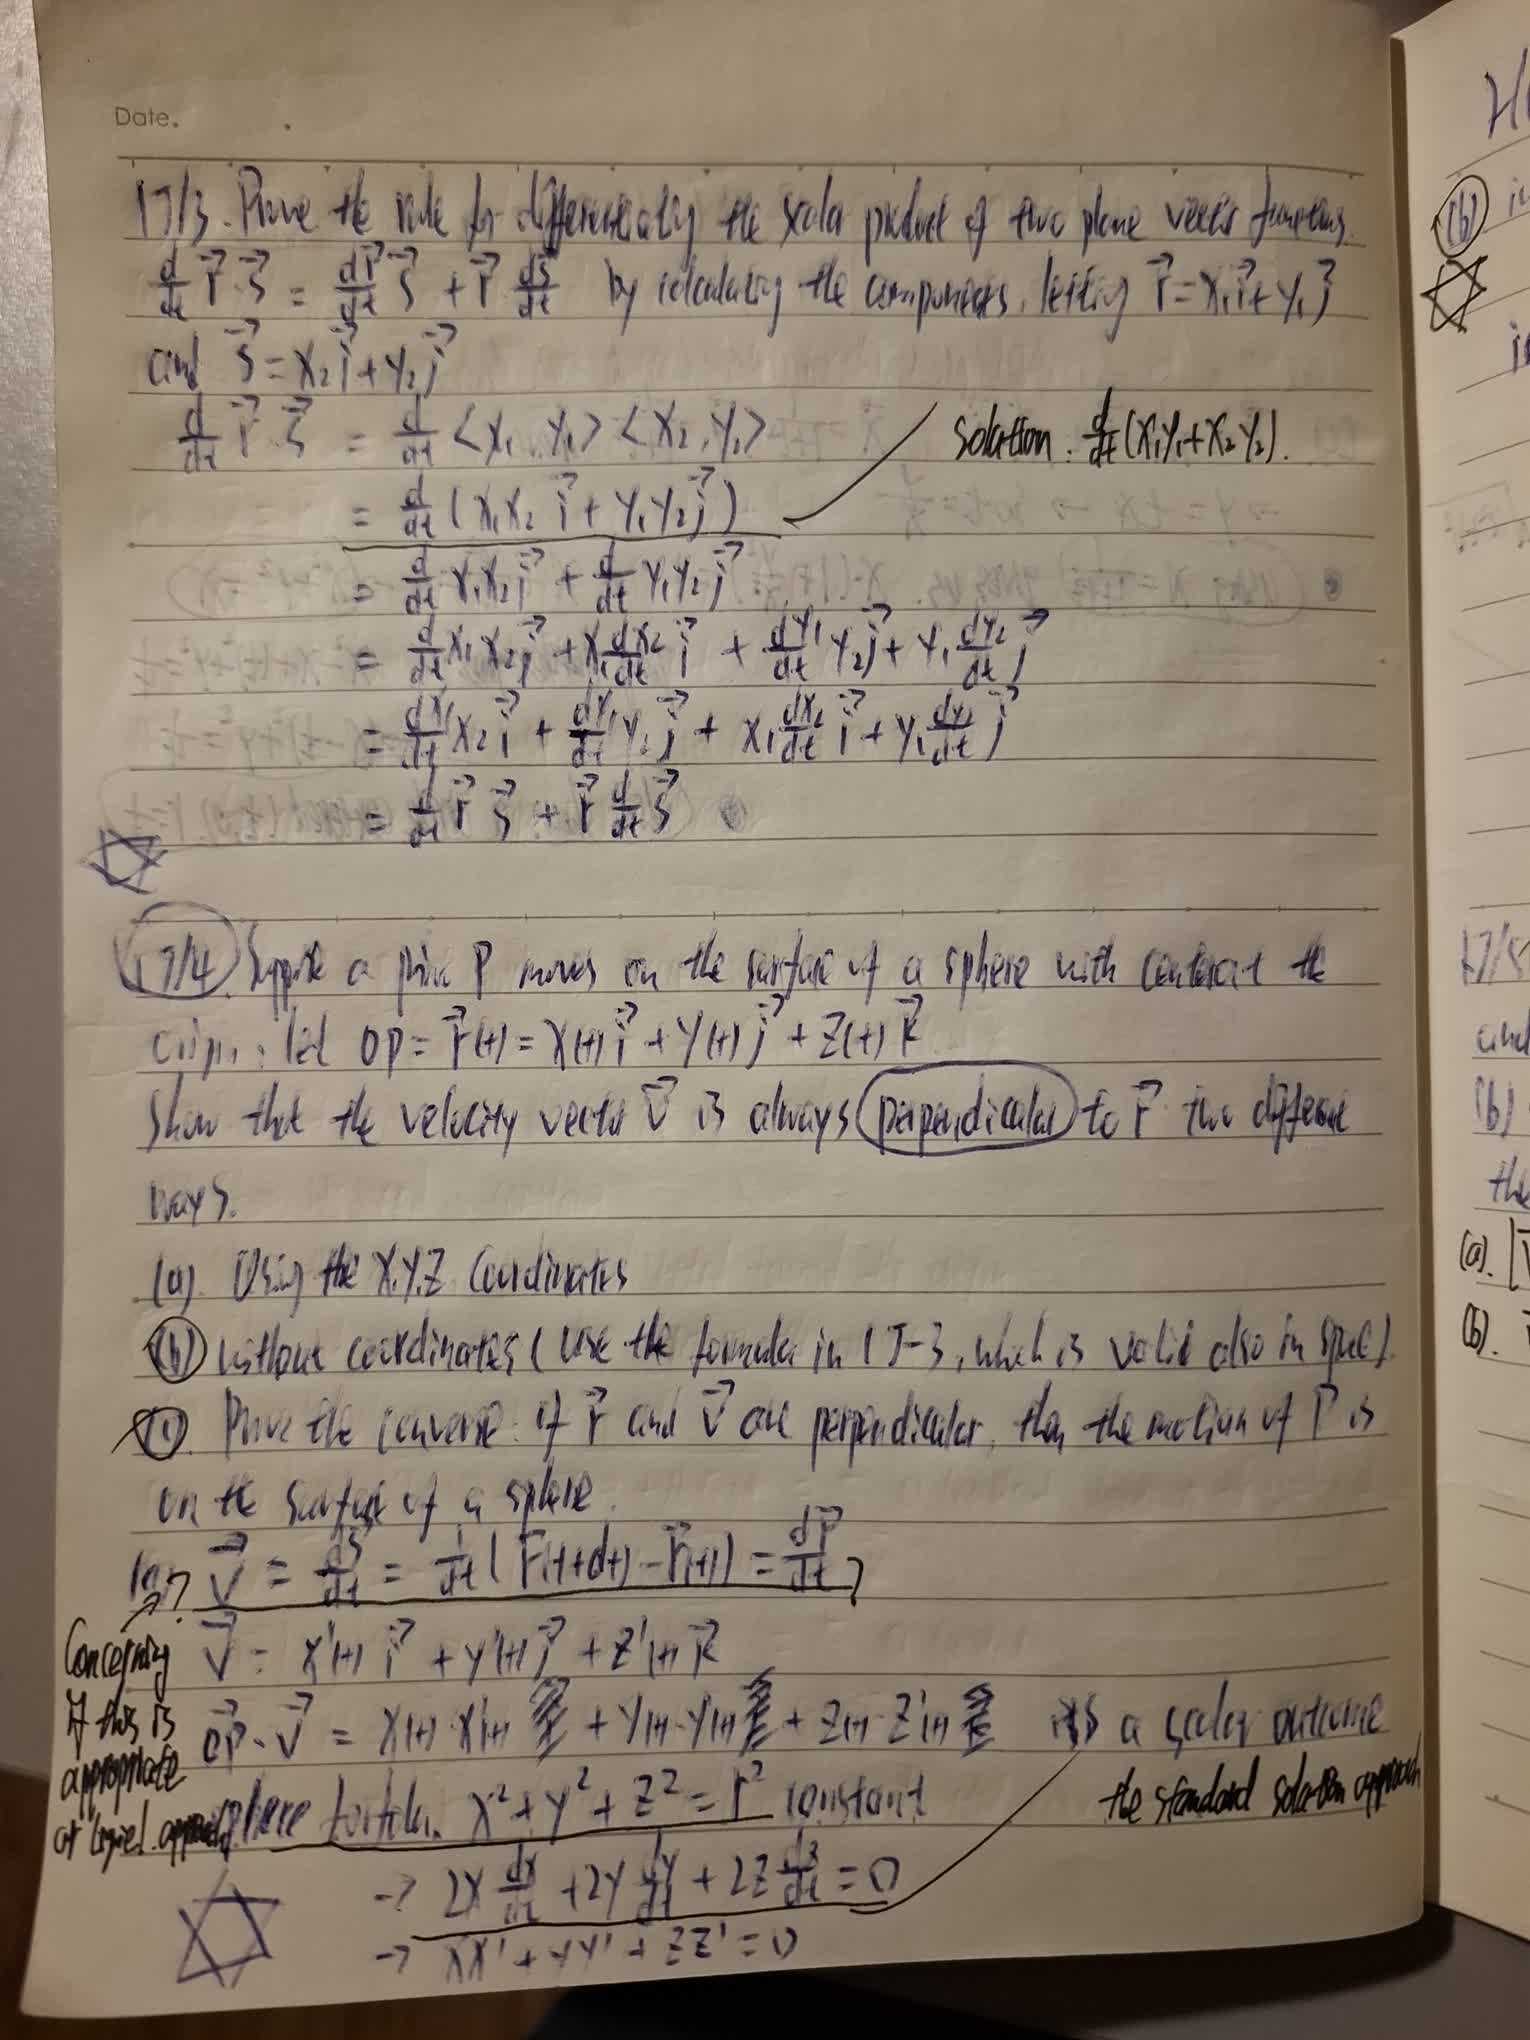 Date.
17/3. Prove the rule for differentiating the scalar product of two plane vector functions.
d/dt r⃗·s⃗ = dr⃗/dt s⃗ + r⃗ ds⃗/dt by calculating the components, letting r⃗ = x₁i⃗ + y₁j⃗
and s⃗ = x₂i⃗ + y₂j⃗
d/dt r⃗·s⃗ = d/dt <x₁, y₁> <x₂, y₂>
solution: d/dt (x₁y₁+x₂y₂).
= d/dt (x₁x₂ i⃗ + y₁y₂ j⃗)
= d/dt x₁x₂ i⃗ + d/dt y₁y₂ j⃗
= d/dt x₁ x₂ i⃗ + x₁ dx₂/dt i⃗ + dy₁/dt y₂ j⃗ + y₁ dy₂/dt j⃗
= dx₁/dt x₂ i⃗ + dy₁/dt y₂ j⃗ + x₁ dx₂/dt i⃗ + y₁ dy₂/dt j⃗
= d/dt r⃗ s⃗ + r⃗ d/dt s⃗
17/4. Suppose a point P moves on the surface of a sphere with center at the
origin. let OP = r⃗(t) = x(t)i⃗ + y(t)j⃗ + z(t)k⃗
Show that the velocity vector v⃗ is always perpendicular to r⃗ two different
ways.
(a). Using the x,y,z coordinates
(b) without coordinates (use the formula in 1J-3, which is valid also in space).
(c). Prove the converse: if r⃗ and v⃗ are perpendicular, then the motion of P is
on the surface of a sphere.
(a)? v⃗ = ds⃗/dt = 1/dt (r⃗(t+dt) - r⃗(t)) = dr⃗/dt ?
Concerning if this is appropriate at
v⃗ = x'(t) i⃗ + y'(t) j⃗ + z'(t) k⃗
OP⃗·v⃗ = x(t)·x'(t) + y(t)·y'(t) + z(t)·z'(t) a scalar outcome
sphere x² + y² + z² = r² constant
the standard solution approach
→ 2x dx/dt + 2y dy/dt + 2z dz/dt = 0
→ xx' + yy' + zz' = 0
(b)
17/5
and
(b)
the
(a).
(b).